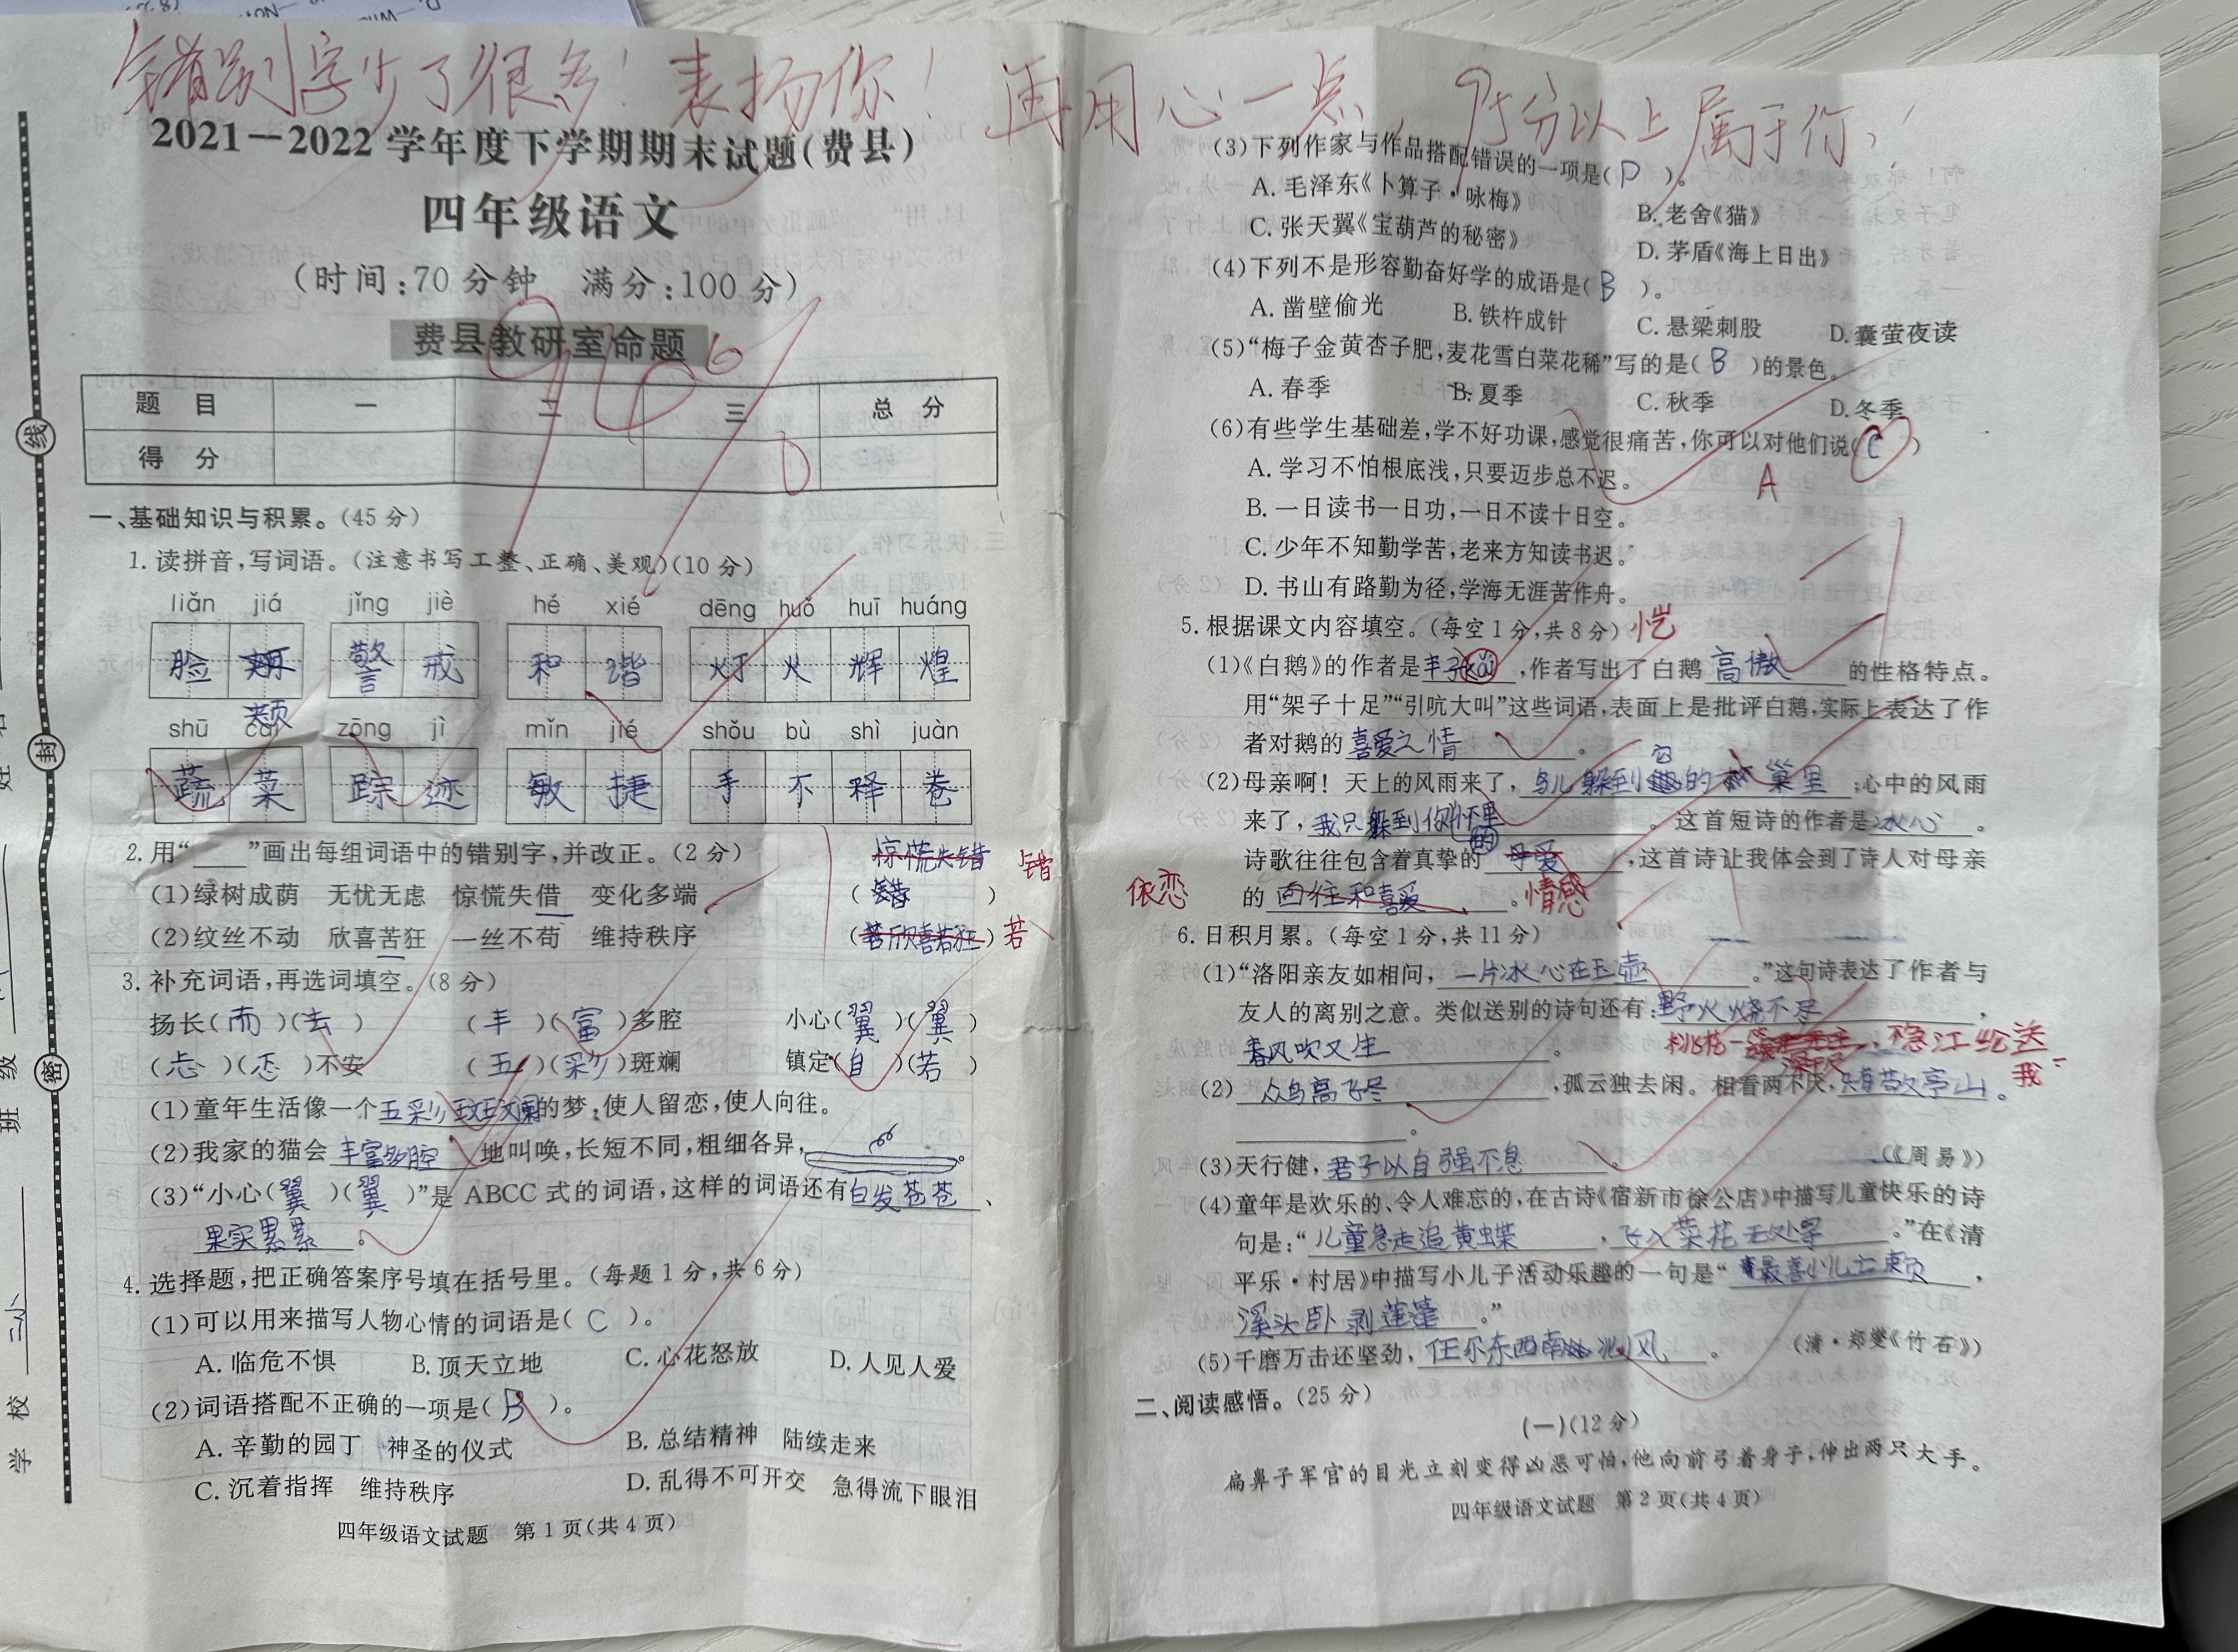 错别字少了很多！表扬你！再用心一点，95分以上属于你！
2021—2022学年度下学期期末试题(费县)
四年级语文
(时间:70分钟 满分:100分)
费县教研室命题
题目 一 二 三 总分
得分
一、基础知识与积累。(45分)
1. 读拼音,写词语。(注意书写工整、正确、美观)(10分)
liǎn jiá jǐng jiè hé xié dēng huǒ huī huáng
脸 警 戒 和 谐 灯 火 辉 煌
颊
shū cài zōng jì mǐn jié shǒu bù shì juàn
蔬 菜 踪 迹 敏 捷 手 不 释 卷
2. 用“____”画出每组词语中的错别字,并改正。(2分)
惊慌失错 错
(1)绿树成荫 无忧无虑 惊慌失借 变化多端 ( )
(2)纹丝不动 欣喜苦狂 一丝不苟 维持秩序 (欣喜若狂) 若
3. 补充词语,再选词填空。(8分)
扬长(而)(去) (丰)(富)多腔 小心(翼)(翼)
(忐)(忑)不安 (五)(彩)斑斓 镇定(自)(若)
(1)童年生活像一个五彩斑斓的梦,使人留恋,使人向往。
(2)我家的猫会丰富多腔地叫唤,长短不同,粗细各异,
(3)“小心(翼)(翼)”是 ABCC 式的词语,这样的词语还有白发苍苍、
果实累累。
4. 选择题,把正确答案序号填在括号里。(每题1分,共6分)
(1)可以用来描写人物心情的词语是( C )。
A. 临危不惧 B. 顶天立地 C. 心花怒放 D. 人见人爱
(2)词语搭配不正确的一项是( B )。
A. 辛勤的园丁 神圣的仪式 B. 总结精神 陆续走来
C. 沉着指挥 维持秩序 D. 乱得不可开交 急得流下眼泪
四年级语文试题 第1页(共4页)
学校 班级
密 封 线
(3)下列作家与作品搭配错误的一项是( D )。
A. 毛泽东《卜算子·咏梅》 B. 老舍《猫》
C. 张天翼《宝葫芦的秘密》 D. 茅盾《海上日出》
(4)下列不是形容勤奋好学的成语是( B )。
A. 凿壁偷光 B. 铁杵成针 C. 悬梁刺股 D. 囊萤夜读
(5)“梅子金黄杏子肥,麦花雪白菜花稀”写的是( B )的景色。
A. 春季 B. 夏季 C. 秋季 D. 冬季
(6)有些学生基础差,学不好功课,感觉很痛苦,你可以对他们说( C )
A. 学习不怕根底浅,只要迈步总不迟。 A
B. 一日读书一日功,一日不读十日空。
C. 少年不知勤学苦,老来方知读书迟。
D. 书山有路勤为径,学海无涯苦作舟。
5. 根据课文内容填空。(每空1分,共8分) 恺
(1)《白鹅》的作者是丰子kǎi,作者写出了白鹅高傲的性格特点。
用“架子十足”“引吭大叫”这些词语,表面上是批评白鹅,实际上表达了作
者对鹅的喜爱之情。
(2)母亲啊! 天上的风雨来了,鸟儿躲到它的巢里;心中的风雨
来了,我只躲到你的怀里。这首短诗的作者是冰心。
诗歌往往包含着真挚的母爱,这首诗让我体会到了诗人对母亲
依恋 的向往和喜爱。情感
6. 日积月累。(每空1分,共11分)
(1)“洛阳亲友如相问,一片冰心在玉壶。”这句诗表达了作者与
友人的离别之意。类似送别的诗句还有:野火烧不尽,
春风吹又生。
(2)众鸟高飞尽,孤云独去闲。相看两不厌,只有敬亭山。
(3)天行健,君子以自强不息。 (《周易》)
(4)童年是欢乐的、令人难忘的,在古诗《宿新市徐公店》中描写儿童快乐的诗
句是:“儿童急走追黄蝶,飞入菜花无处寻。”在《清
平乐·村居》中描写小儿子活动乐趣的一句是“最喜小儿亡赖,
溪头卧剥莲蓬。”
(5)千磨万击还坚劲,任尔东西南北风。 (清·郑燮《竹石》)
二、阅读感悟。(25分)
(一)(12分)
扁鼻子军官的目光立刻变得凶恶可怕,他向前弓着身子,伸出两只大手。
四年级语文试题 第2页(共4页)